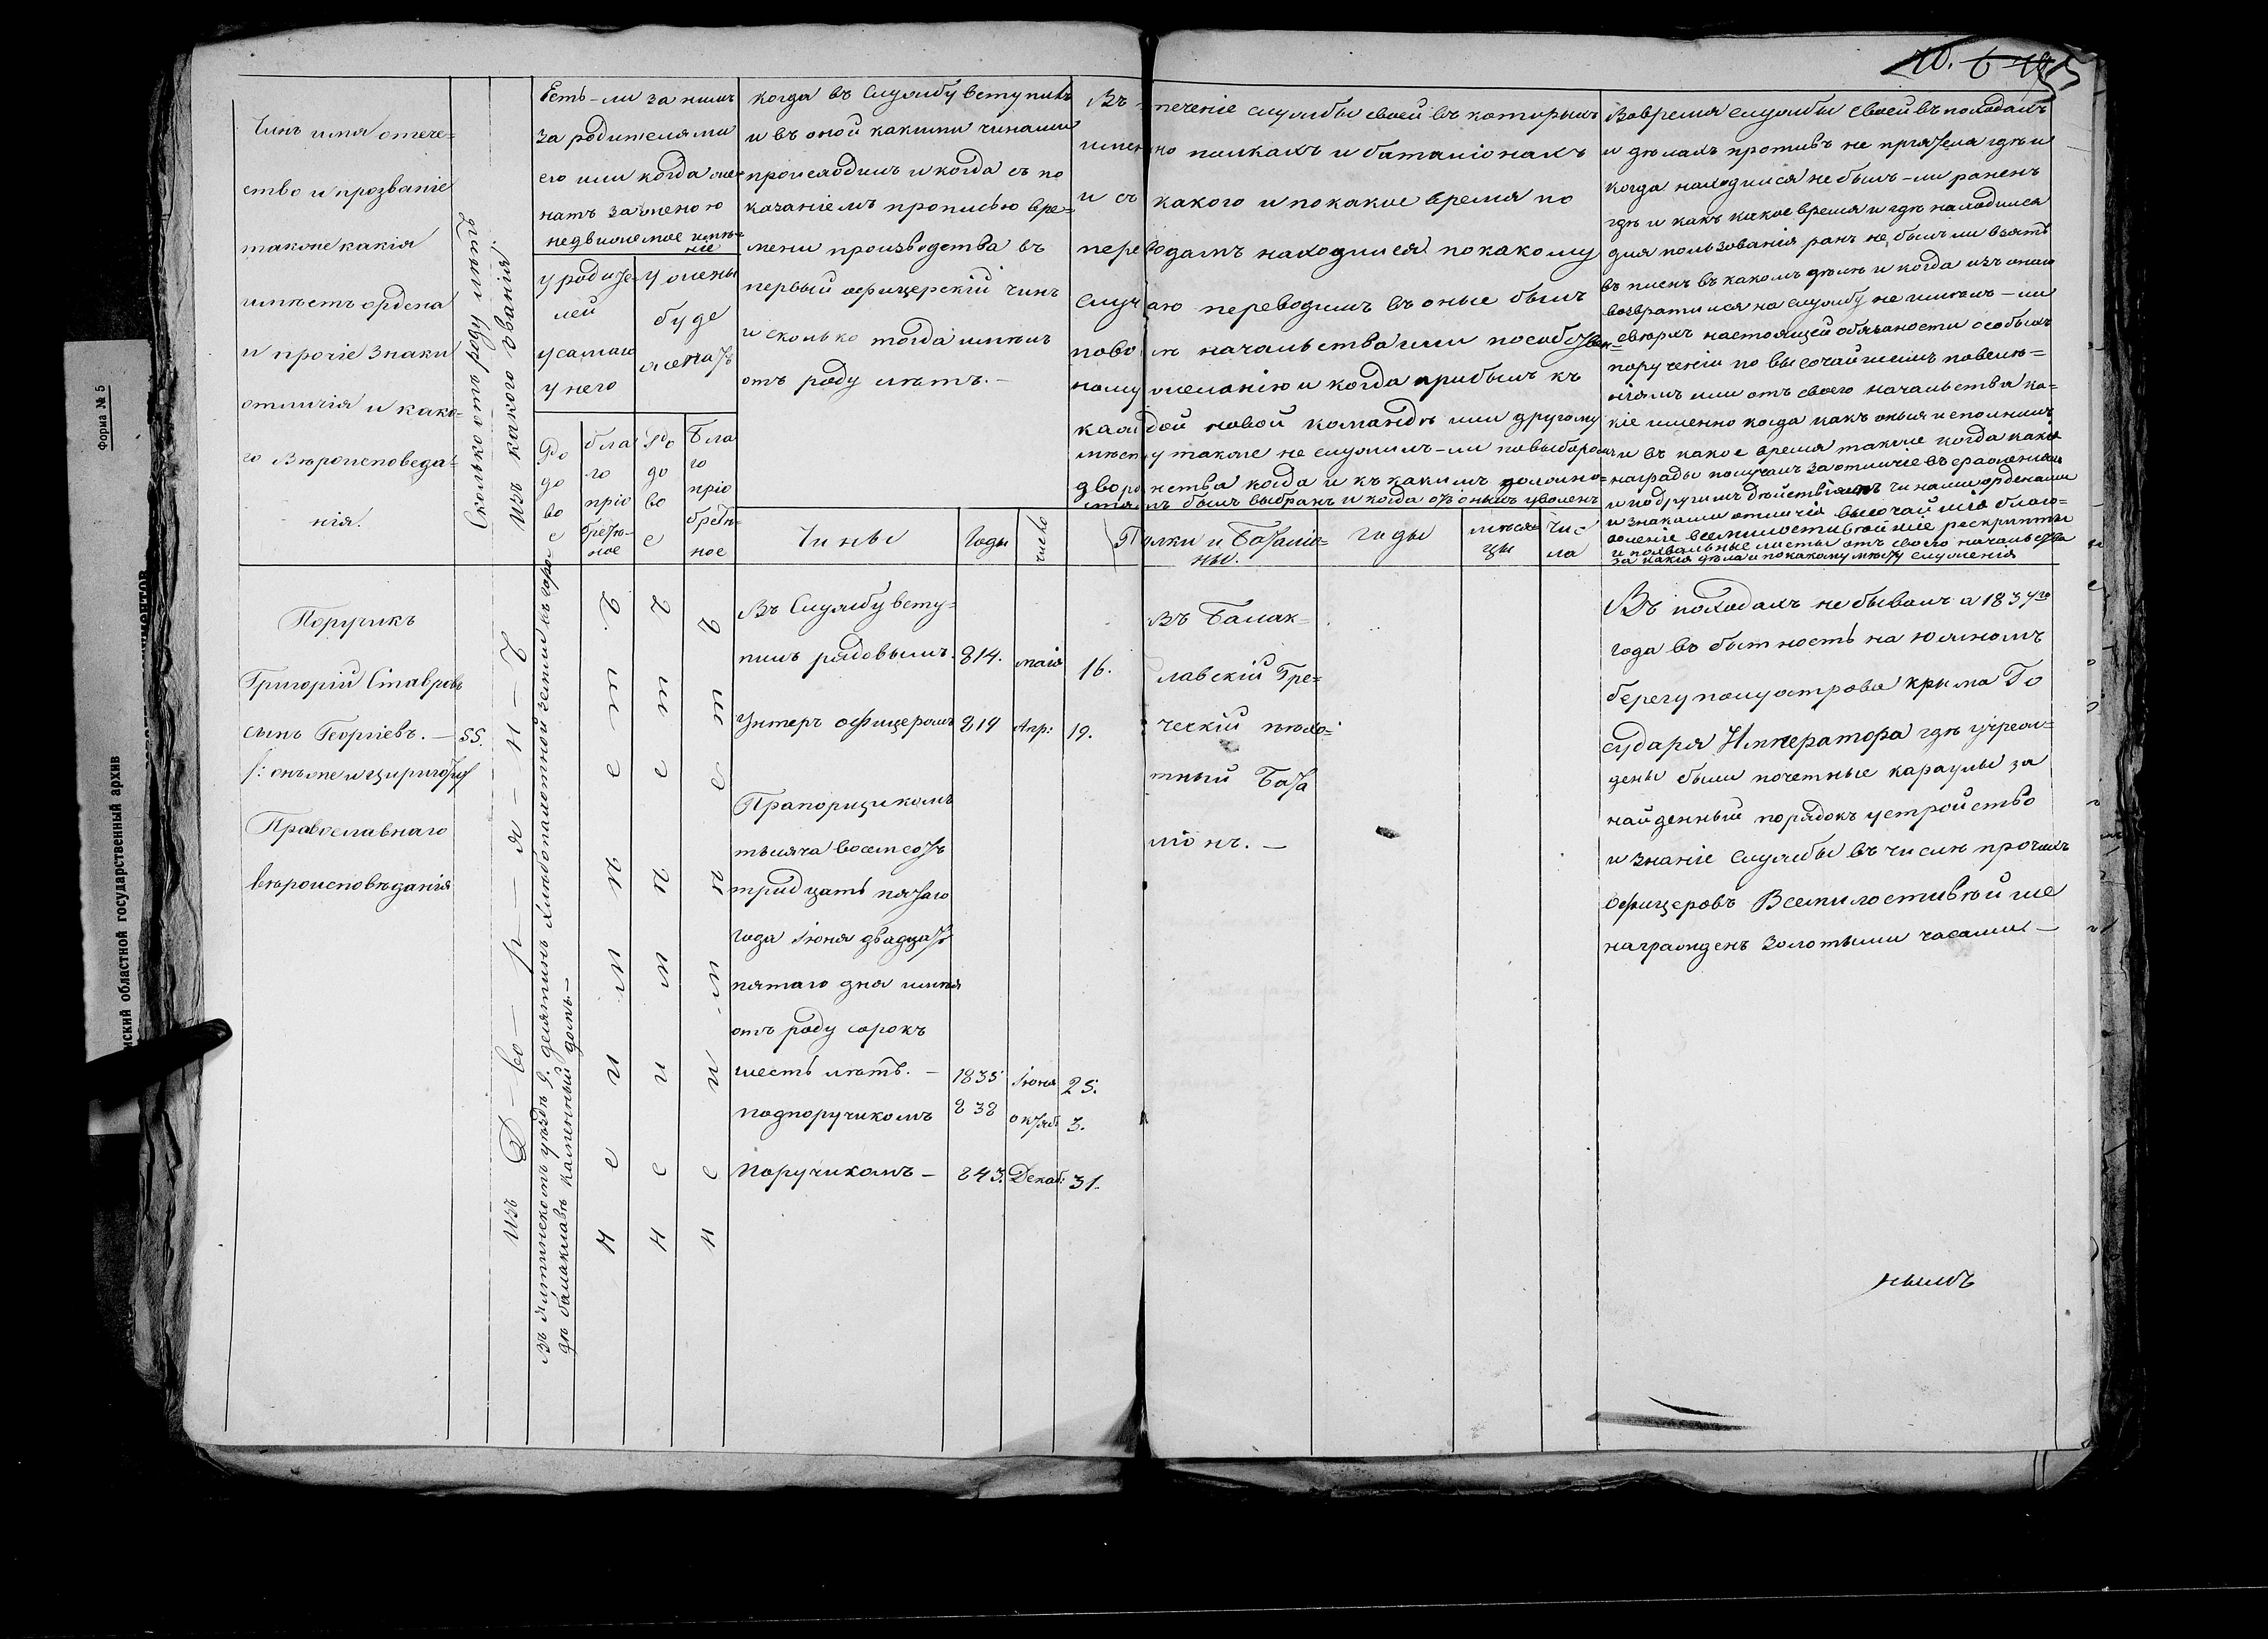 Форма № 5
областной государственный архив
Чинъ имя отече=
ство и прозваніе
такоже какія
имѣетъ ордена
и прочіе знаки
отличія и како=
го Вѣроисповеда=
нія.
Сколько отъ роду лѣтъ
изъ какого званія
Есть-ли за нимъ
за родителями
его или когда же=
натъ за женою
недвижемое имѣ=
ніе
у родите=
лей
у самаго
у него
у жены
буде
женатъ
Родо
вое
благопріобретѣнное
Родо
вое
Благопріобретѣнное
когда въ Службу вступилъ
и въ оной какими чинами
происходилъ и когда съ по
казаніемъ прописью вре=
мени произвотства въ
первый офицерскій чинъ
и сколько тогда имѣлъ
отъ роду лѣтъ.-
Чины
Годы
число
Въ теченіе службы своей въ которыхъ
именно полкахъ и баталіонахъ
и съ какого и по какое время по
переводамъ находился по какому
случаю переводимъ въ оные былъ
по волѣ начальства или по собствен=
ному желанію и когда прибылъ къ
каждой новой командѣ или другому
мѣсту также не служилъ-ли по выборамъ
дворянства когда и къ какимъ должно=
стямъ былъ выбранъ и когда отъ оныхъ уволенъ
Полки и Баталіо=
ны.
годы
мѣсяцы
числа
Вовремя службы своей въ походахъ
и дѣлахъ противъ не пріятеля гдѣ и
когда находился не былъ-ли раненъ
гдѣ и какъ какое время и гдѣ находился
для пользованія ранъ не былъ ли взятъ
въ плѣнъ въ какомъ дѣлѣ и когда изъ онаго
возвратился на службу не имѣлъ-ли
сверхъ настоящей обязаности особыхъ
порученіи по высочайшимъ повелѣ=
ніямъ или отъ своего начальства ка=
кіе именно когда какъ оныя исполнилъ
и въ какое время такоже когда какія
награды получалъ за отличіе въ сраженіяхъ
и по другимъ дѣйствіямъ чинами орденами
и знаками отличія высочайшіе благо=
воленіе всемилостивѣйшіе рескрипты
и похвальные листы отъ своего начальства
за какія дѣла и по какому мѣсту служенія
Поручикъ
Григорій Ставровъ
сынъ Георгіевъ. —
Православнаго
вѣроисповѣданія
55.
Изъ Д-во-р-я-н-ъ
Въ Ялтинскомъ уѣздѣ 9. десятинъ хлебопахотной земли и въ горо
дѣ балаклавѣ каменный домъ.—
Неимѣетъ
Неимѣетъ
Неимѣетъ
Въ Службу всту=
пилъ рядовымъ. 814. маія 16.
Унтеръ офицеромъ 819 Апр: 19.
Прапорщикомъ
тысяча восемсотъ
тридцать пятаго
года Іюня двадцать
пятаго дня имѣя
отъ роду сорокъ
шесть лѣтъ. — 1835 Іюня 25.
подпоручикомъ 838 октяб 3.
Поручикомъ — 843. Декаб: 31.
Въ Балак=
лавскій Гре=
ческій пѣхо=
тный Бата
ліонъ. —
Въ походахъ не бывалъ а 1837го
года въ бытность на южномъ
берегу полуострова Крыма Го
сударя Императора гдѣ учреж=
дены были почетные караулы за
найденный порядокъ устройство
и знаніе службы въ числѣ прочихъ
офицеровъ Всемилостивѣйше
награжденъ золотыми часами.—